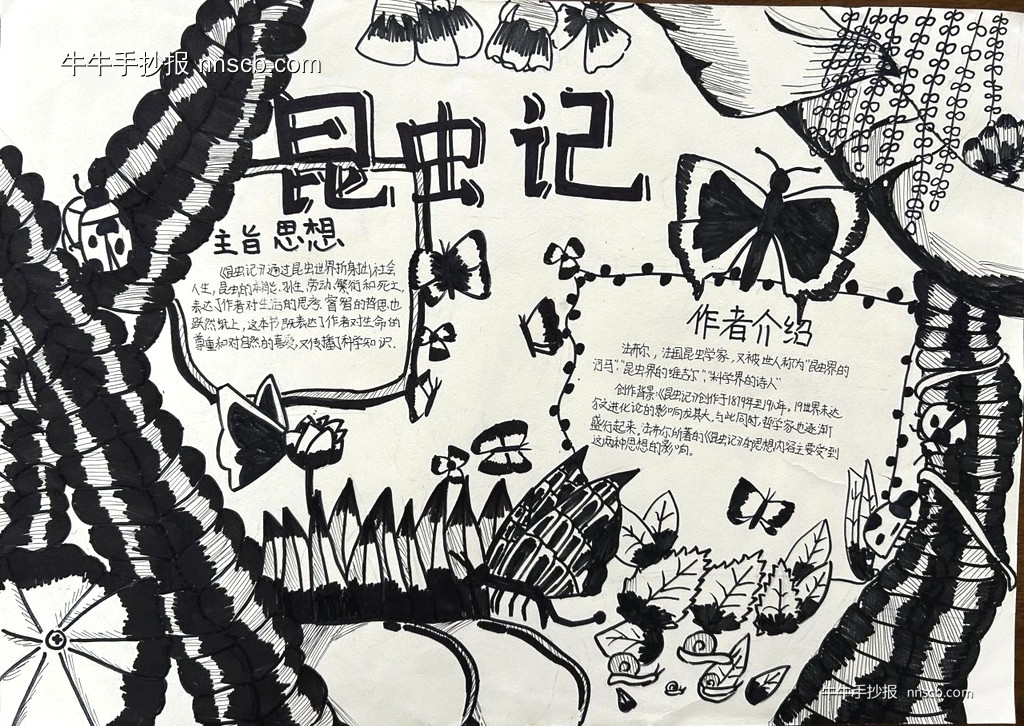 牛牛手抄报 nnscb.com
昆虫记
主旨思想
《昆虫记》通过昆虫世界折身拙社会
人生,昆虫的本能、习性、劳动、繁衍和死亡,
表达了作者对生活的思考,富智的哲思也
跃然纸上,这本书既表达了作者对生命的
尊重和对自然的喜爱,又传播了科学知识.
作者介绍
法布尔,法国昆虫学家,又被世人称为"昆虫界的
河马""昆虫界的维吉尔","科学界的诗人"
创作背景:《昆虫记》创作于1879年至1910年,19世界末达
尔文进化论的影响尤其大,与此同时,哲学家也逐渐
盛行起来,法布尔所著的《昆虫记》的思想内容主要受到
这两种思想的影响.
牛牛手抄报 nnscb.com